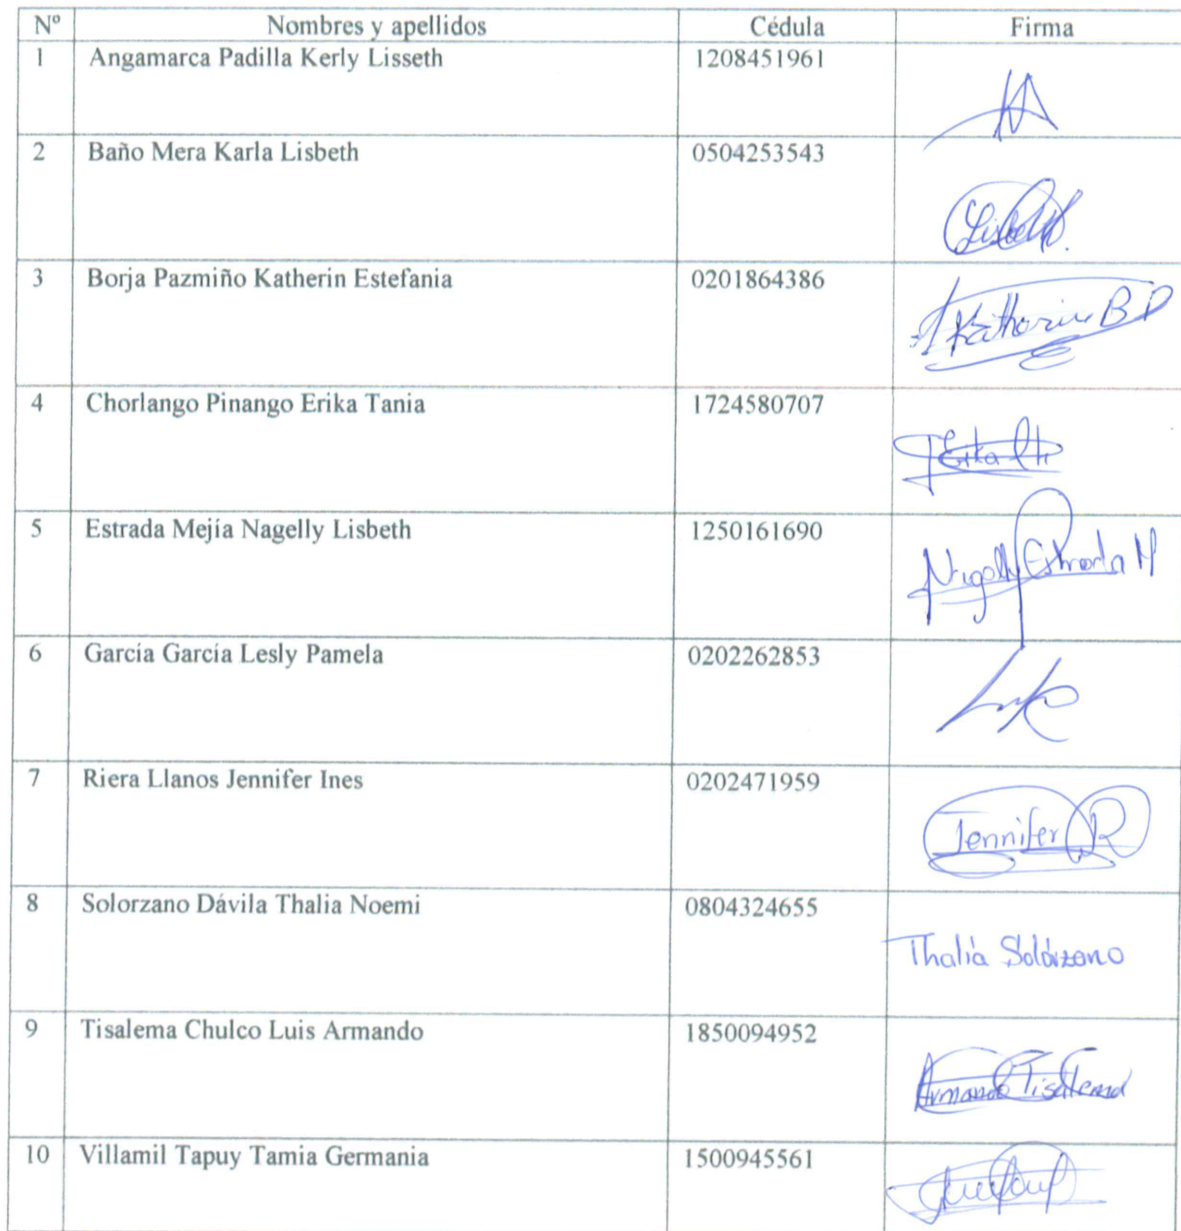 Nº Nombres y apellidos Cédula Firma
1 Angamarca Padilla Kerly Lisseth 1208451961
2 Baño Mera Karla Lisbeth 0504253543
Lisbeth
3 Borja Pazmiño Katherin Estefania 0201864386
Katherin B P
4 Chorlango Pinango Erika Tania 1724580707
Erika Ch
5 Estrada Mejía Nagelly Lisbeth 1250161690
Nagelly Estrada M
6 García García Lesly Pamela 0202262853
7 Riera Llanos Jennifer Ines 0202471959
Jennifer R
8 Solorzano Dávila Thalia Noemi 0804324655
Thalia Solórzano
9 Tisalema Chulco Luis Armando 1850094952
Armando Tisalema
10 Villamil Tapuy Tamia Germania 1500945561